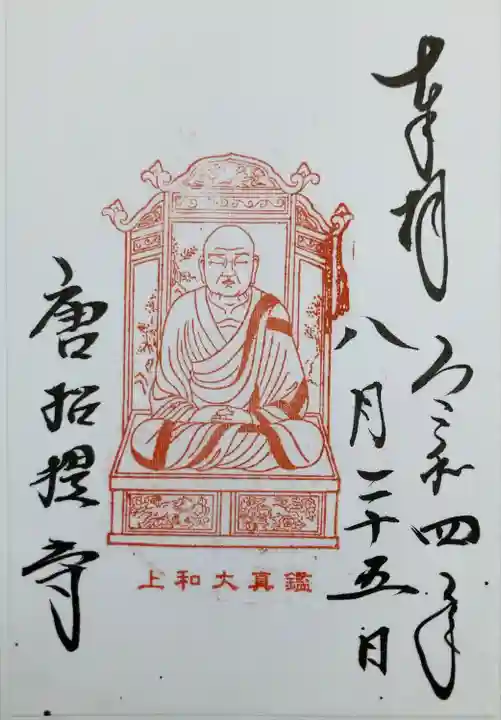 奉拝 令和四年
八月二十五日
鑑真大和上
唐招提寺